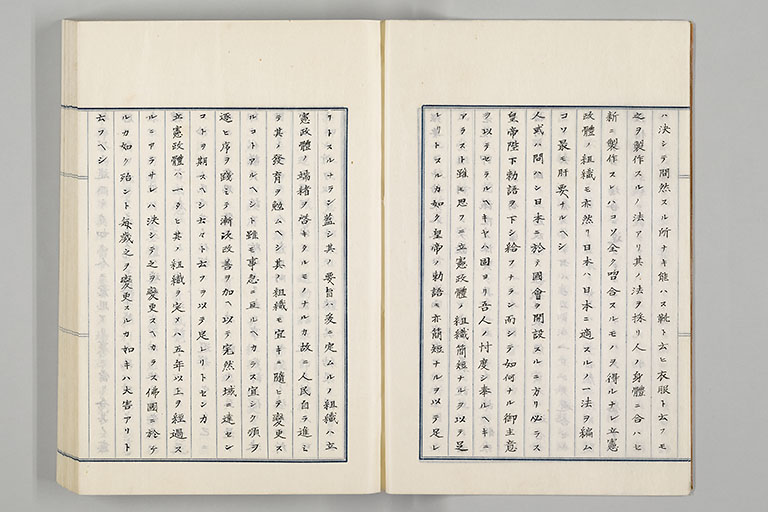 ハ決シテ間然スル所ナキ能ハス靴ト云ヒ衣服ト云フモ
之ヲ製作スルノ法アリ其ノ法ヲ採リ人ノ身體ニ合ハセ
新ニ製作スレハコソ全ク吻合スルモノヲ得ルナレ立憲
政體ノ組織モ亦然リ日本ハ日本ニ適スルノ一法ヲ編ム
コソ最モ肝要ナルヘシ
人或ハ問ハン日本ニ於テ國會ヲ開設スルニ方リ必ラス
皇帝陛下勅語ヲ下シ給フナラン而シテ如何ナル御主意
ヲ以テセラルヘキヤハ固ヨリ吾人ノ忖度シ奉ルヘキニ
アラスト雖モ思フニ立憲政體ノ組織簡短ナルヲ以テ足
レリトスルカ如ク皇帝ノ勅語モ亦簡短ナルヲ以テ足レ
リトスルナラン蓋シ其ノ要旨ハ爰ニ定ムルノ組織ハ立
憲政體ノ端緒ヲ啓キタルモノナルカ故ニ人民自ラ進ミ
テ其ノ發育ヲ勉ムヘシ其ノ組織モ宜キニ隨ヒテ變更ス
ルコトアルヘシト雖モ事急ニ亘ルヘカラス宜シク順ヲ
逐ヒ序ヲ踐ミテ漸次改善ヲ加ヘ以テ完然ノ域ニ達セン
コトヲ期スヘシ云々ト云フヲ以テ足レリトセンカ
立憲政體ハ一タヒ其ノ組織ヲ定メハ五年以上ヲ經過ス
ルニアラサレハ決シテ之ヲ變更スヘカラス佛國ニ於ケ
ルカ如ク殆ント毎歳之ヲ變更スルカ如キハ大害アリト
云フヘシ